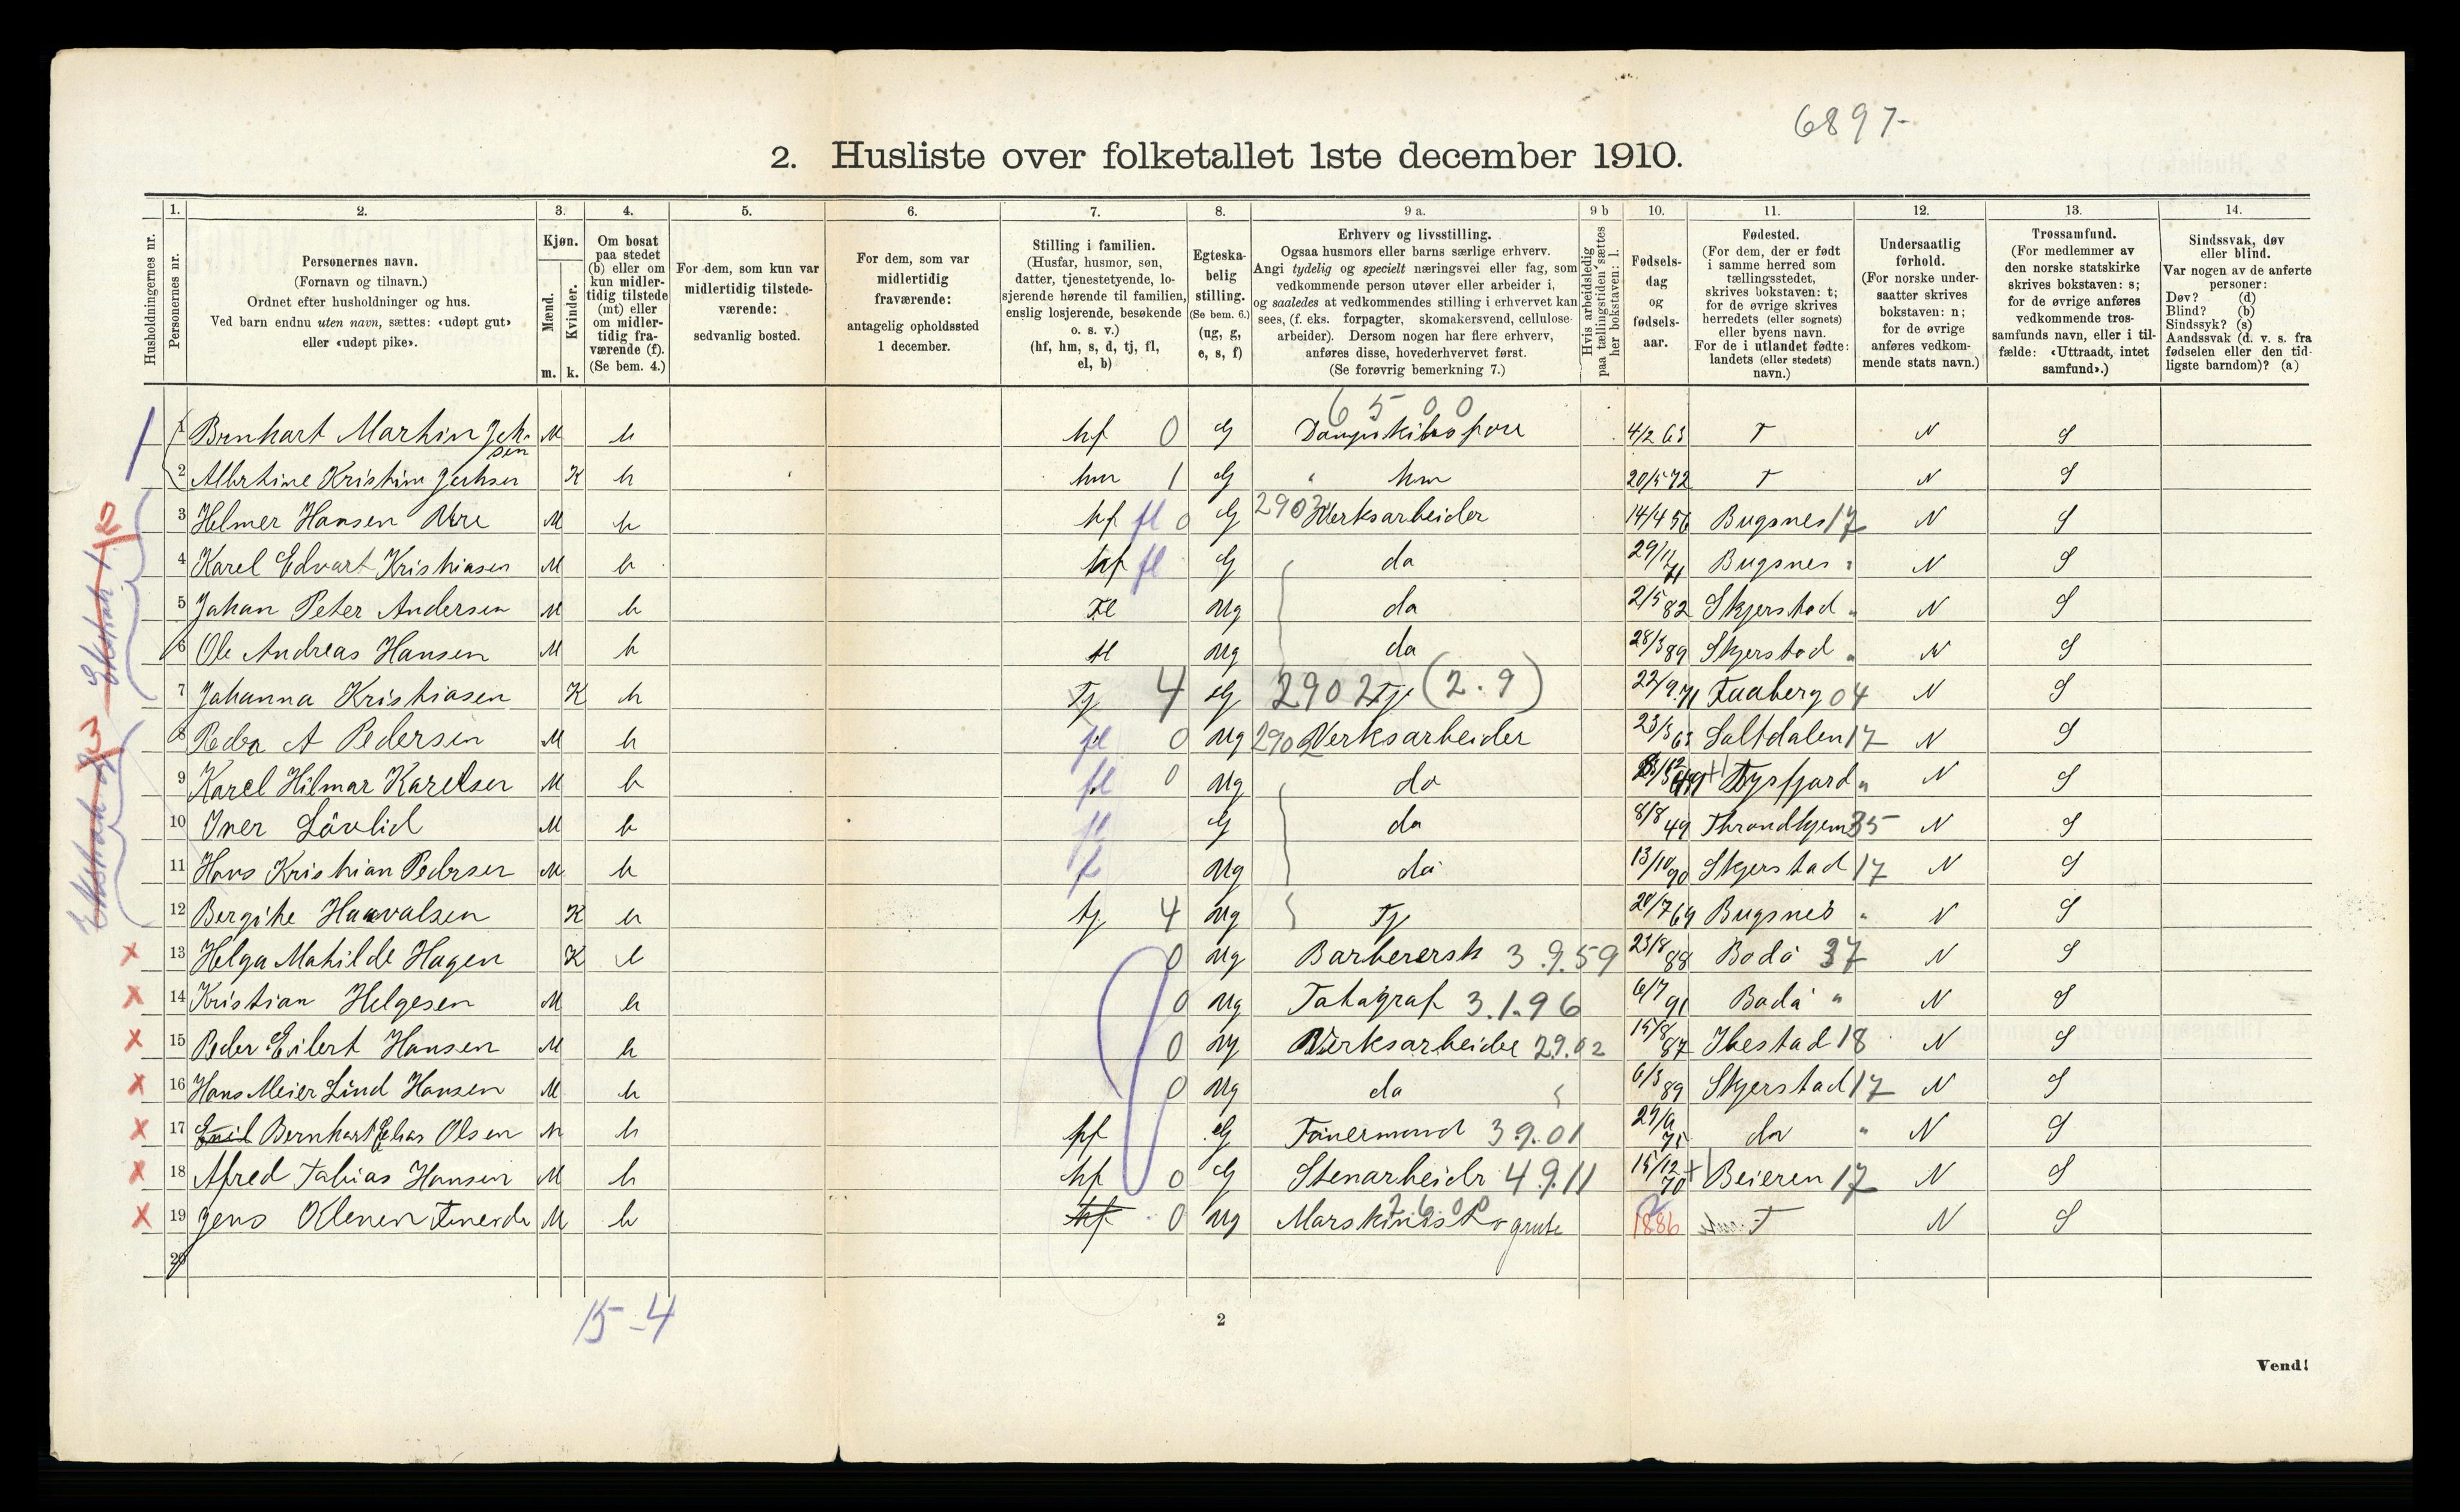 6897-
2. Husliste over folketallet 1ste december 1910.
Husholdningernes nr.
1.
Personernes nr.
2.
Personernes navn.
(Fornavn og tilnavn.)
Ordnet efter husholdninger og hus.
Ved barn endnu uten navn, sættes: «udøpt gut»
eller «udøpt pike».
3.
Kjøn.
Mænd.
Kvinder.
m. k.
4.
Om bosat
paa stedet
(b) eller om
kun midler-
tidig tilstede
(mt) eller
om midler-
tidig fra-
værende (f).
(Se bem. 4.)
5.
For dem, som kun var
midlertidig tilstede-
værende:
sedvanlig bosted.
6.
For dem, som var
midlertidig
fraværende:
antagelig opholdssted
1 december.
7.
Stilling i familien.
(Husfar, husmor, søn,
datter, tjenestetyende, lo-
sjerende hørende til familien,
enslig losjerende, besøkende
o. s. v.)
(hf, hm, s, d, tj, fl,
el, b)
8.
Egteska-
belig
stilling.
(Se bem. 6.)
(ug, g,
e, s, f)
9 a.
Erhverv og livsstilling.
Ogsaa husmors eller barns særlige erhverv.
Angi tydelig og specielt næringsvei eller fag, som
vedkommende person utøver eller arbeider i,
og saaledes at vedkommendes stilling i erhvervet kan
sees, (f. eks. forpagter, skomakersvend, cellulose-
arbeider). Dersom nogen har flere erhverv,
anføres disse, hovederhvervet først.
(Se forøvrig bemerkning 7.)
9 b
Hvis arbeidsledig
paa tællingstiden sættes
her bokstaven: l.
10.
Fødsels-
dag
og
fødsels-
aar.
11.
Fødested.
(For dem, der er født
i samme herred som
tællingsstedet,
skrives bokstaven: t;
for de øvrige skrives
herredets (eller sognets)
eller byens navn.
For de i utlandet fødte:
landets (eller stedets)
navn.)
12.
Undersaatlig
forhold.
(For norske under-
saatter skrives
bokstaven: n;
for de øvrige
anføres vedkom-
mende stats navn.)
13.
Trossamfund.
(For medlemmer av
den norske statskirke
skrives bokstaven: s;
for de øvrige anføres
vedkommende tros-
samfunds navn, eller i til-
fælde: «Uttraadt, intet
samfund».)
14.
Sindssvak, døv
eller blind.
Var nogen av de anførte
personer:
Døv? (d)
Blind? (b)
Sindssyk? (s)
Aandssvak (d. v. s. fra
fødselen eller den tid-
ligste barndom)? (a)
6500
1 Martin M b hf 0 G 4/2 63 T N S
2 Kristine K b hm 1 G " hm 20/5 72 T N S
3 Helmer Hansen M b hf fl 0 G 2903 Verksarbeider 14/4 56 Bugsnes 17 N S
4 Karel Edvart Kristiasen M b hf fl G do 29/12 71 Bugsnes " N S
5 Johan Peter Andersen M b Fl Ug do 2/5 82 Skjerstad " N S
6 Ole Andreas Hansen M b fl Ug do 28/3 89 Skjerstad " N S
7 Johanna Kristiasen K b Tj 4 G 2902 Tje (2.9) 22/9 71 Faaberg 04 N S
8 A Pedersen M b fl 0 Ug 2902 Verksarbeider 23/3 63 Saltdalen 17 N S
9 Karel Hilmar Karelsen M b fl 0 Ug do Tysfjord " N S
10 Iver Lövlid M b fl G do 8/8 49 Throndhjem 35 N S
11 Hans Kristian Pedersen M b f Ug do 13/10 90 Skjerstad 17 N S
12 K b tj 4 Ug Tje 20/7 69 Bugsnes " N S
13 Helga Matilde Hagen K b 0 Ug Barberersk 3.9.59 23/8 88 Bodö 37 N S
14 Kristian Helgesen M b 0 Ug 3.1.96 6/7 91 Bodö " N S
15 Peder Eilert Hansen M b 0 Ug Verksarbeider 29.02 15/8 87 Ibestad 18 N S
16 Hans Meier Lind Hansen M b 0 Ug do " 6/3 89 Skjerstad 17 N S
17 Bernhart Elias Olsen M b hf G 39.01 do " N S
18 Alfred Tobias Hansen M b hf 0 G Stenarbeider 49.11 15/12 70 Beieren 17 N S
19 Jens M b hf 0 Ug 2600 1886 T N S
20
15-4
2
Vend!